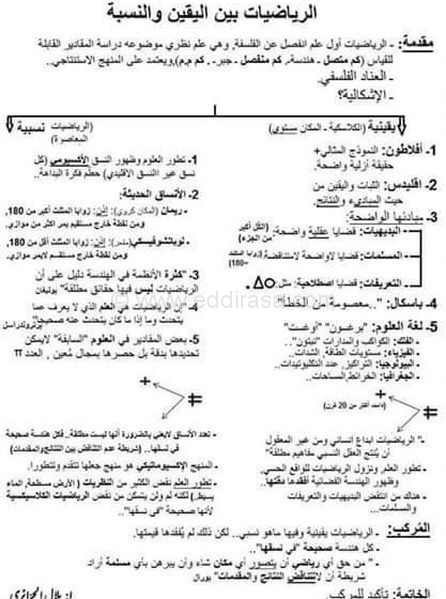 الرياضيات بين اليقين والنسبة
مقدمة: - الرياضيات أول علم انفصل عن الفلسفة، وهي علم نظري موضوعه دراسة المقادير القابلة
للقياس (كم متصل - هندسة.. كم منفصل - جبر.. كم م.م)، ويعتمد على المنهج الاستنتاجي..
- العناد الفلسفي.
- الإشكالية؟
يقينية (الكلاسكية - المكان مستوي)
1- أفلاطون: النموذج المثالي+
حقيقة أزلية واضحة.
2- اقليدس: الثبات واليقين من
حيث المبادىء والنتائج.
3- مبادئها الواضحة:
- البديهيات: قضايا عقلية واضحة (الكل أكبر
من الجزء)
- المسلمات: قضايا لاواضحة لامتناقضة (زوايا المثلث
=180)
- التعريفات: قضايا اصطلاحية: مثل:
4- باسكال: "..معصومة من الخطأ"
5- لغة العلوم: "برغسون" "أوغست"
- الفلك: الكواكب والمدارات "نيتون"..
- الفيزياء: مستويات الطاقة، الشدات..
- البيولوجيا: التراكيز، عدد النكليوتيدات..
- الجغرافيا: الخرائط، المساحات..
+
≠
(فاسد أكثر من 20 قرن)
- "الرياضيات ابداع انساني ومن غير المعقول
أن يُنتج العقل النسبي مفاهيم مطلقة"
- تطور العلم، ونزول الرياضيات للواقع الحسي،
وظهور الهندسة الفضائية أفقدها دقتها..
- هناك من انتقض البديهيات والتعريفات
والمسلمات..
(الرياضيات نسبية
المعاصرة)
1- تطور العلوم وظهور النسق الأكسيومي (كل
نسق غير النسق الاقليدي) حطّم فكرة البداهة..
2- الأنساق الحديثة:
- ريمان (المكان كروي): إذن: زوايا المثلث أكبر من 180,
ومن نقطة خارج مستقيم يمر اكثر من موازي.
- لوباتشوفيسكي: إذن: زوايا المثلث أقل من 180,
ومن نقطة خارج مستقيم لايمر موازي.
3- "كثرة الأنظمة في الهندسة دليل على أن
الرياضيات ليس فيها حقائق مطلقة" بوليغان
4- "إن الرياضيات هي العلم الذي لا يعرف عما
يتحدث وما إذا ما كان يتحدث عنه صحيحا" برتروندراسل
5- بعض المقادير في العلوم "السابقة" لايمكن
تحديدها بدقة بل حصرها بمجال مُعين , العدد π
+
≠
- تعدد الأنساق لايعني بالضرورة أنها ليست مطلقة.. فكل هندسة صحيحة
"في نسقها".. (شريطة عدم التناقض بين النتائج والمقدمات)
- المنهج الإكسيوماتيكي هو منهج جعلها تتقدم وتتطورا.
- تطور العلم نفض الكثير من النظريات (الأرض مسطحة, الماء
بسيط..) لكنه لم ولن يتمكن من نفض الرياضيات الكلاسيكسية
لأنها صحيحة "في نسقها"..
المُركب: - الرياضيات يقينية وفيها ماهو نسبي.. لكن ذلك لم يُفقدها قيمتها.
- كل هندسة صحيحة "في نسقها"..
- " من حق أي رياضي أن يتصور أي مكان شاء وأن يبرهن بأي مسلمة أراد
شريطة أن لاتتناقض النتائج والمقدمات" بورال
الخاتمة: تأكيد للمركب.
أ: بلال الجزائري
www.eddirasa.com